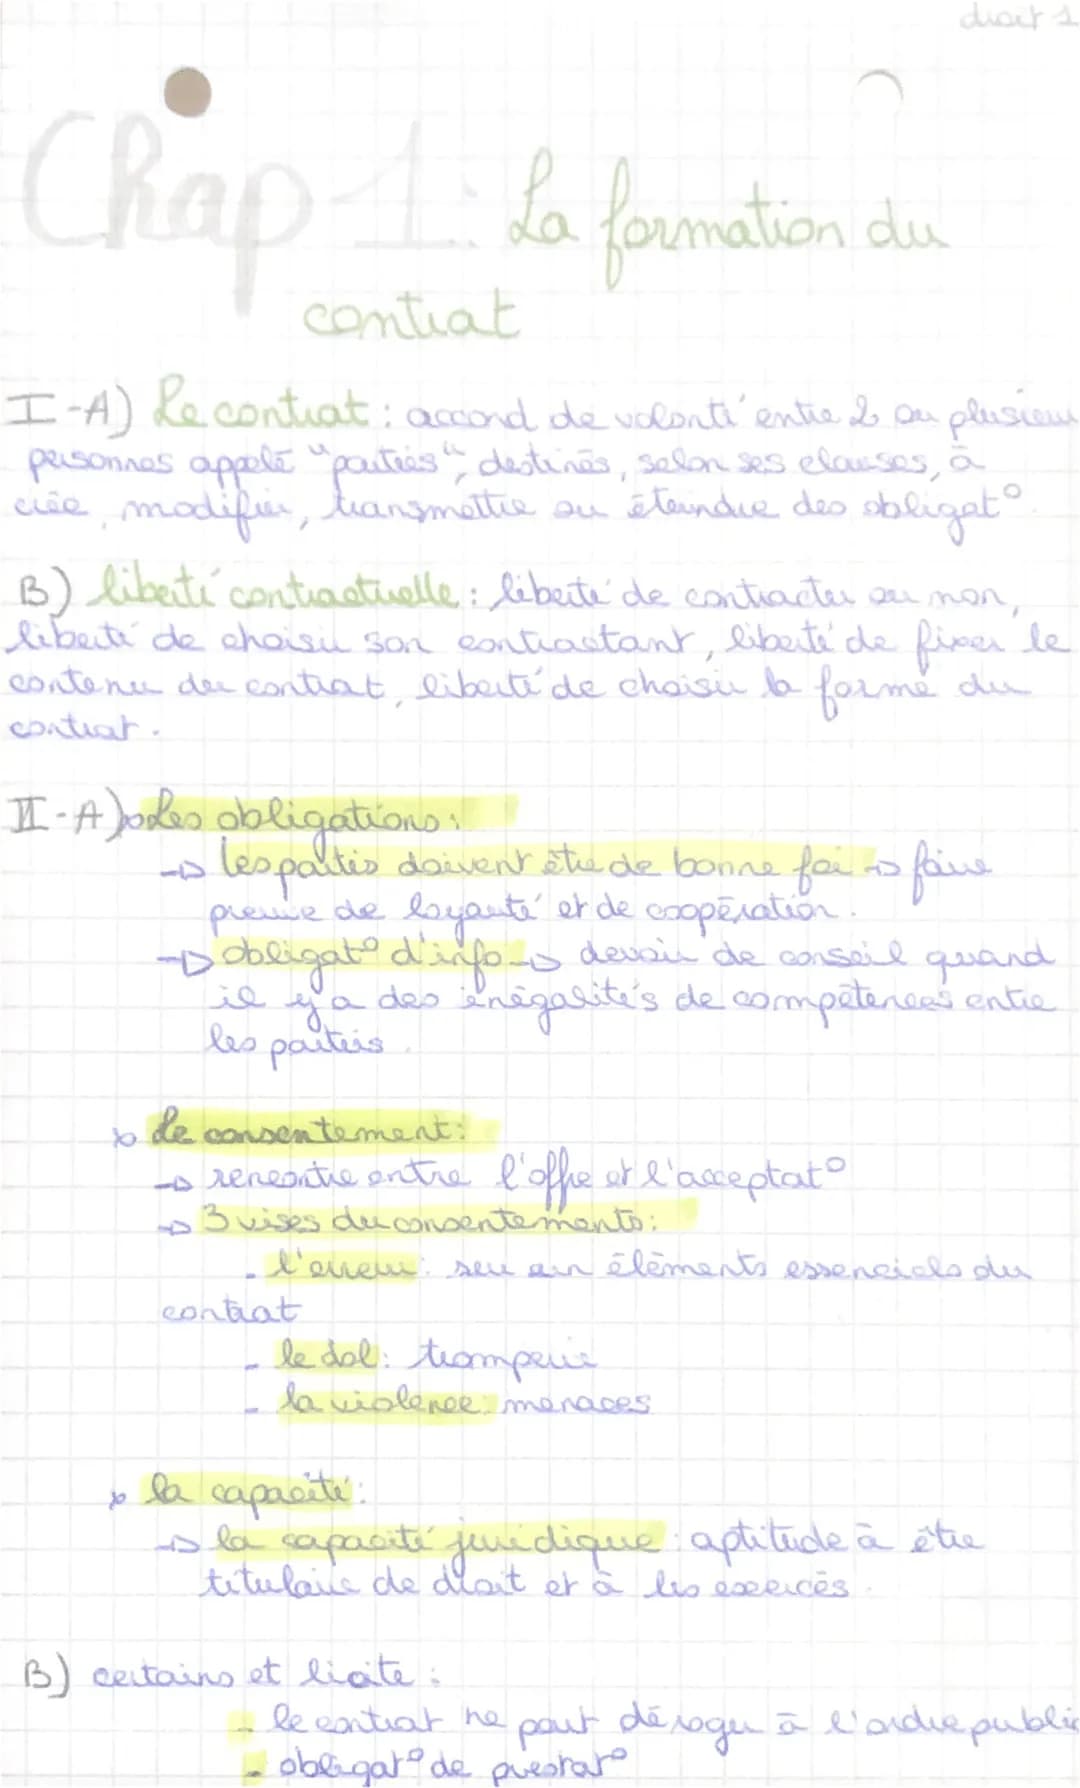 droit 1
Chap 1: La formation du
contrat
I-A) Le contrat : accord de volonté entre 2 ou plusieurs
personnes appelé "parties", destinés, selon ses clauses, à
crée, modifier, transmettre ou éteindre des obligat°
B) liberté contractuelle : liberté de contracter ou non,
liberté de choisir son contractant, liberté de fixer le
contenu du contrat, liberté de choisir la forme du
contrat.
II-A) Les obligations :
→ les parties doivent être de bonne foi → faire
preuve de loyauté et de coopération.
→ obligat° d'info → devoir de conseil quand
il y a des inégalités de compétences entre
les parties.
Le consentement :
→ rencontre entre l'offre et l'acceptat°
→ 3 vises du consentements :
- l'erreur : seu un éléments essenciels du
contrat
- le dol : tromperie
- la violence : menaces
la capacité :
→ la capacité juridique : aptitude à être
titulaire de droit et à les exercés.
B) certains et licite :
- le contrat ne peut déroger à l'ordre public
- obligat° de prestat°